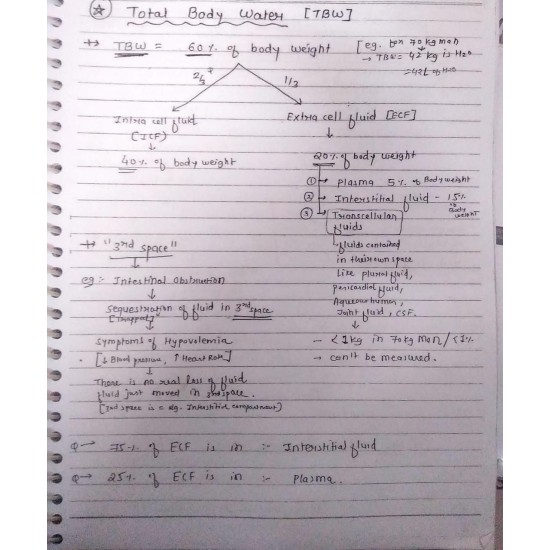 Total Body Water [TBW]
TBW = 60% of body weight [eg. for 70 kg man
→ TBW = 42 kg is H2O
=42L of H2O
2/3 1/3
Intra cell fluid Extra cell fluid [ECF]
[ICF]
40% of body weight 20% of body weight
① → Plasma 5% of Body weight
② → Interstitial fluid - 15% of Body weight
③ → Transcellular fluids
"3rd space" fluids contained
in their own space
eg :- Intestinal Obstruction like plural fluid,
pericardial fluid,
Sequestration of fluid in 3rd space Aqueous humur,
[trapped] Joint fluid, CSF.
Symptoms of Hypovolemia - <1kg in 70kg Man / <1%
[↓ Blood pressure, ↑ Heart Rate] - can't be measured.
There is no real loss of fluid
fluid just moved in 3rd space.
[ space is a eg. Interstitial compartment)
Q → 75% of ECF is in :- Interstitial fluid
Q → 25% of ECF is in :- Plasma.